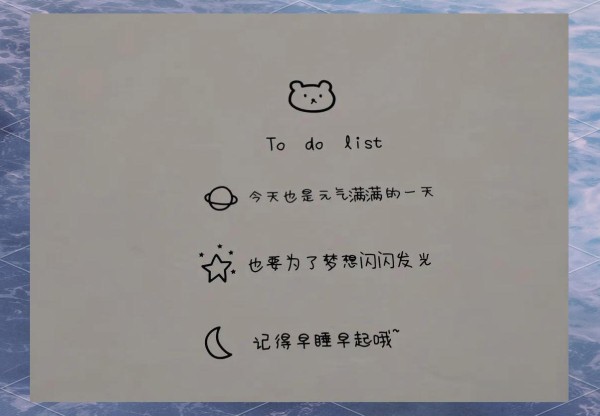 To do list
今天也是元气满满的一天
也要为了梦想闪闪发光
记得早睡早起哦~